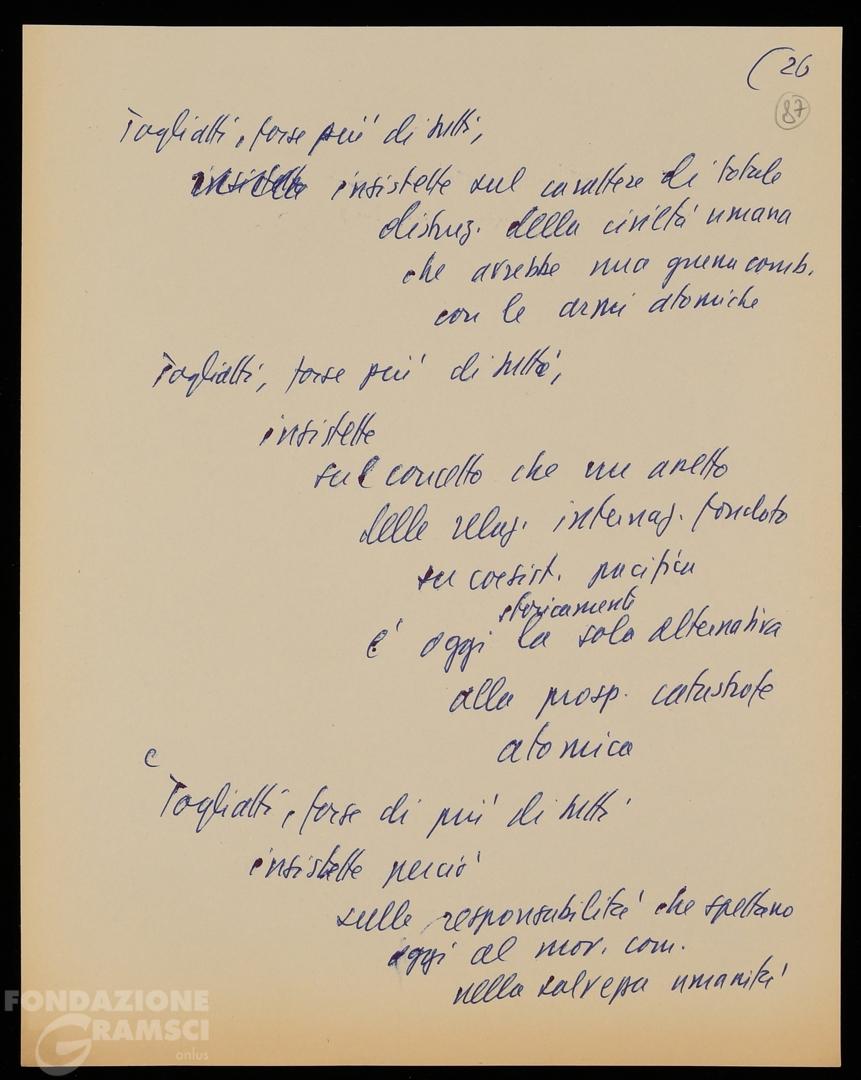 (26
87
Togliatti, forse più di tutti,
insistette insistette sul carattere di totale
distruz. della civiltà umana
che avrebbe una guerra comb.
con le armi atomiche
Togliatti, forse più di tutti,
insistette
sul concetto che un assetto
delle relaz. internaz. fondato
su coesist. pacifica
storicamente
è oggi la sola alternativa
alla prosp. catastrofe
atomica
e
Togliatti, forse di più di tutti
insistette perciò
sulle responsabilità che spettano
oggi al mov. com.
nella salvezza umanità
FONDAZIONE
GRAMSCI
onlus